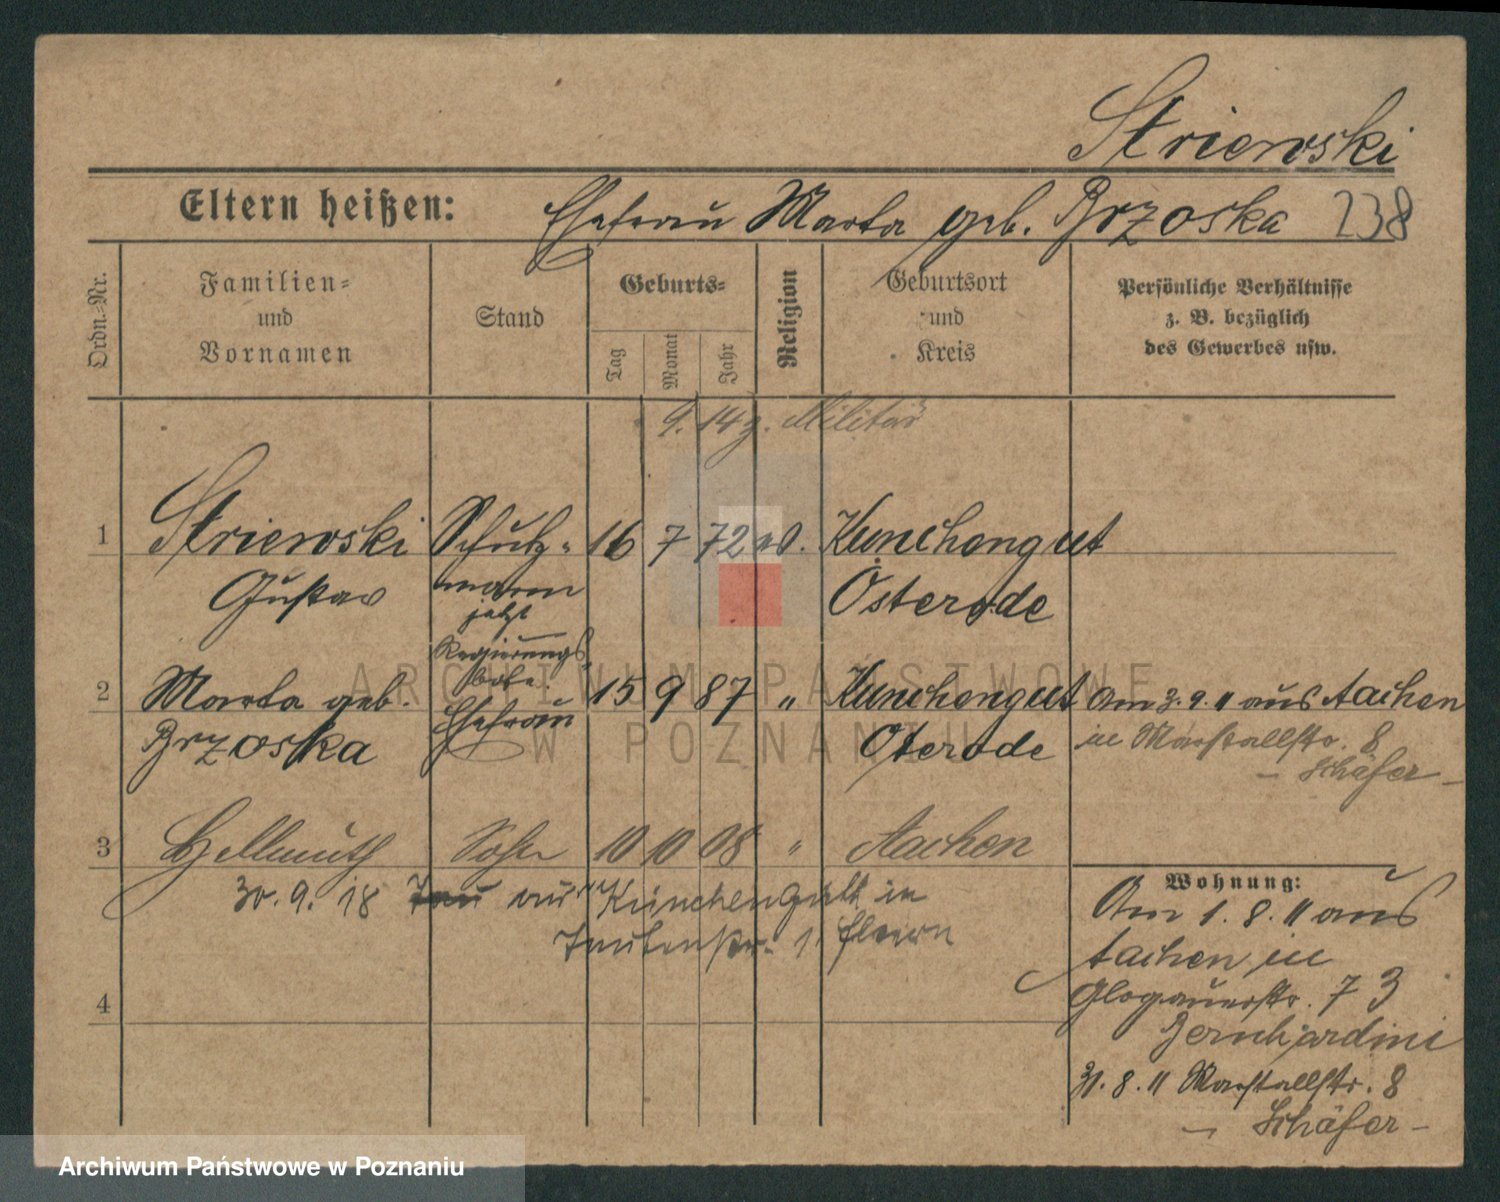 Striewski
Eltern heißen: Ehefrau Marta geb. Brzoska 238
Ordn.-Nr.
Familien- und Vornamen
Stand
Geburts-
Tag Monat Jahr
Religion
Geburtsort und Kreis
Persönliche Verhältnisse
z. B. bezüglich
des Gewerbes usw.
9. 14 z. Militär
1 Striewski Schutz- 16 7 72 ev. Kunchengut
Gustav mann Osterode
jetzt
Regierungs
bote.
2 Marta geb. Ehefrau 15 9 87 " Kunchengut Am 3. 9. 11 aus Aachen
Brzoska Osterode in Marstallstr. 8
– Schäfer –
3 Hellmuth Sohn 10 10 08 " Aachen
30. 9. 18 aus Künchengutt in
1. Eltern
4
Wohnung:
Am 1. 8. 11 aus
Aachen in
Glogauerstr. 73
Bernhardini
31. 8. 11 Marstallstr. 8
– Schäfer –
ARCHIWUM PAŃSTWOWE
W POZNANIU
Archiwum Państwowe w Poznaniu